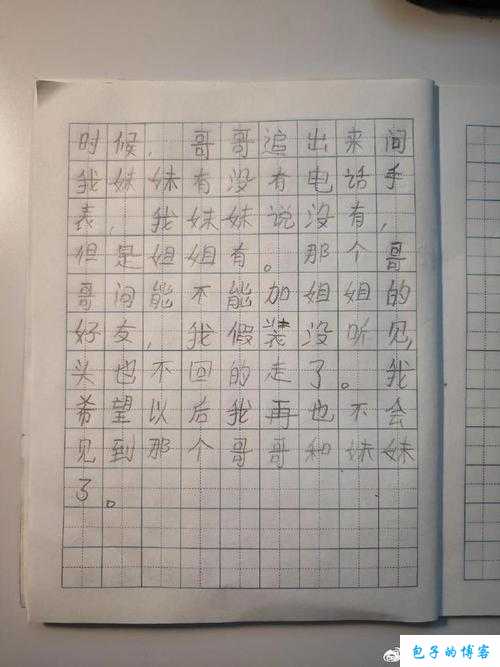 时候，哥哥追出来问
我妹妹有没有电话手
表，我妹妹说没有，
但是姐姐有。那个哥
哥问能不能加姐姐的
好友，我假装没听见，
头也不回的走了。我
希望以后我再也不会
见到那个哥哥和妹妹
了。
包子的博客